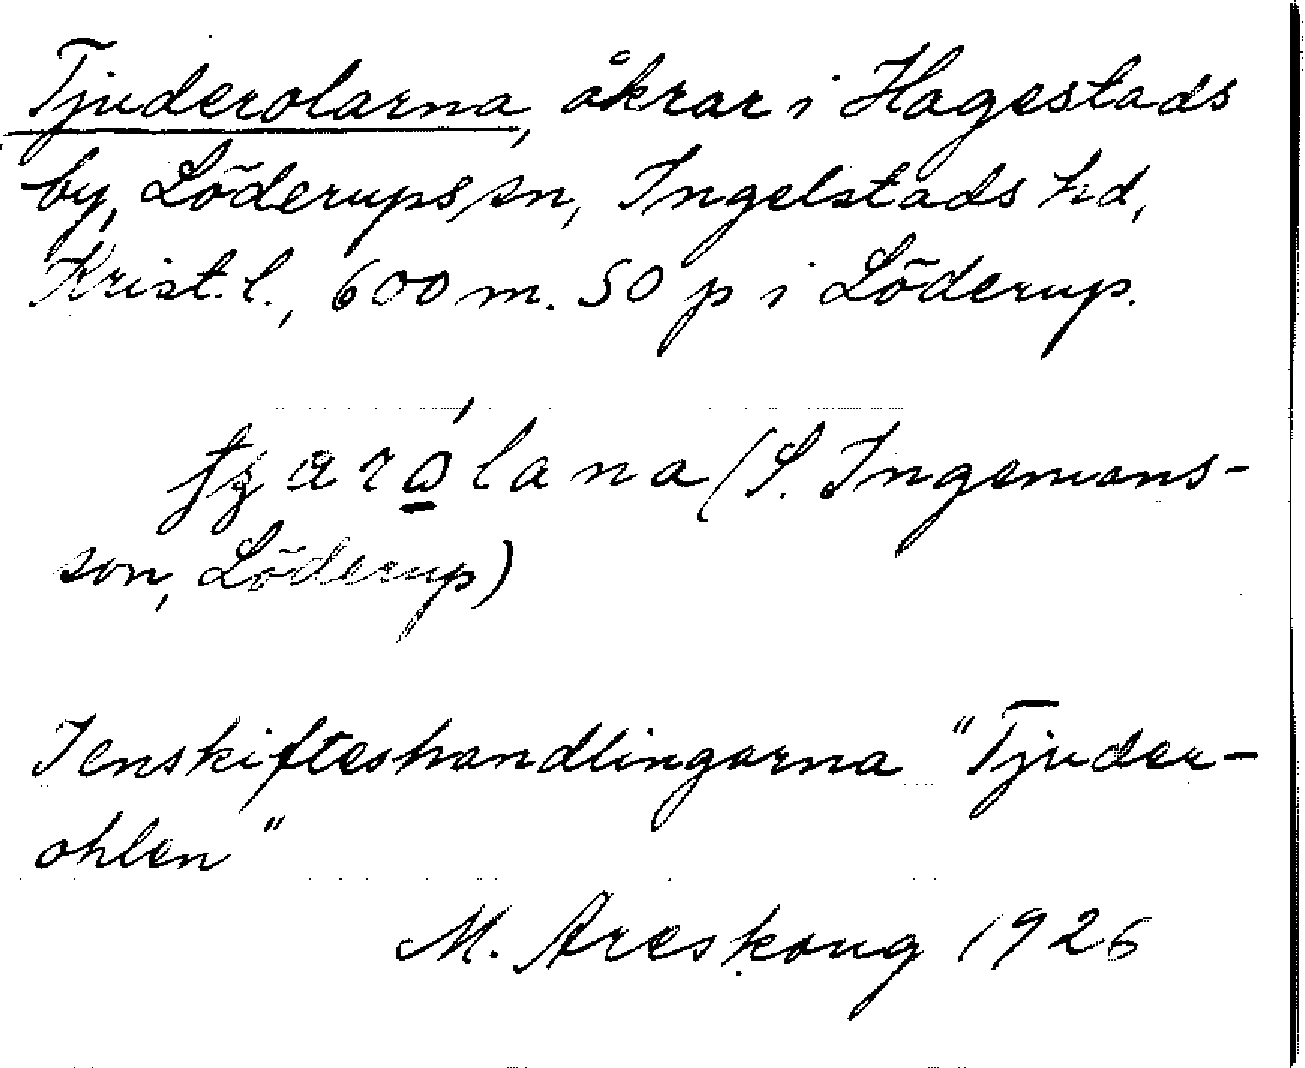 Tjuderolarna, åkrar i Hagestads
by, Löderups sn, Ingelstads hd,
Krist. l., 600 m. SO p i Löderup.
(S. Ingemans-
son, Löderup)
I enskifteshandlingarna "Tjuder-
ohlen"
M. Areskoug 1926